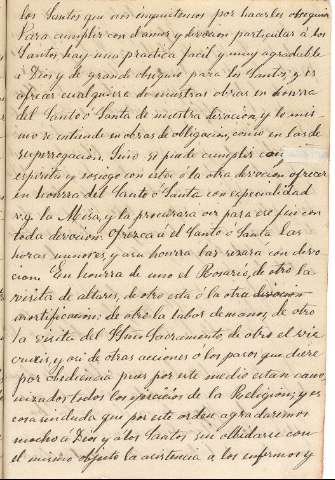 los Santos que nos inquietemos por hacerles obsequios
Para cumplir con el amor y devocion particular á los
Santos hay una practica facil y muy agradable
á Dios y de grande obsequio para los Santos, y es
ofrecer cualquiera de nuestras obras en honrra
del Santo ó Santa de nuestra devocion, y lo mis-
mo se entiende en obras de obligacion, como en las de
supererrogacion. Sino se puede cumplir con
espiritu y sosiego con esta ó la otra devocion ofrecer
en honrra del Santo ó Santa con especialidad
v.g. la Misa, y la procurara oir para ese fin con
toda devocion. Ofrezca á el Santo ó Santa las
horas menores, y asu honrra las rezara con devo-
cion. En honrra de uno el Rosario, de otro la
visita de altares, de otro esta ó la otra devocion
mortificacion: de otro la labor de manos, de otro
la visita del Smo Sacramento, de otro el via
crucis, y asi de otras acciones ó los pasos que diere
por obediencia pues por este medio estan cano-
nizados todos los ejercicios de la Religion; y es
cosa indudada que por este orden agradaremos
mucho á Dios y alos Santos sin olbidarse con
el mismo objecto la asistencia a los enfermos y